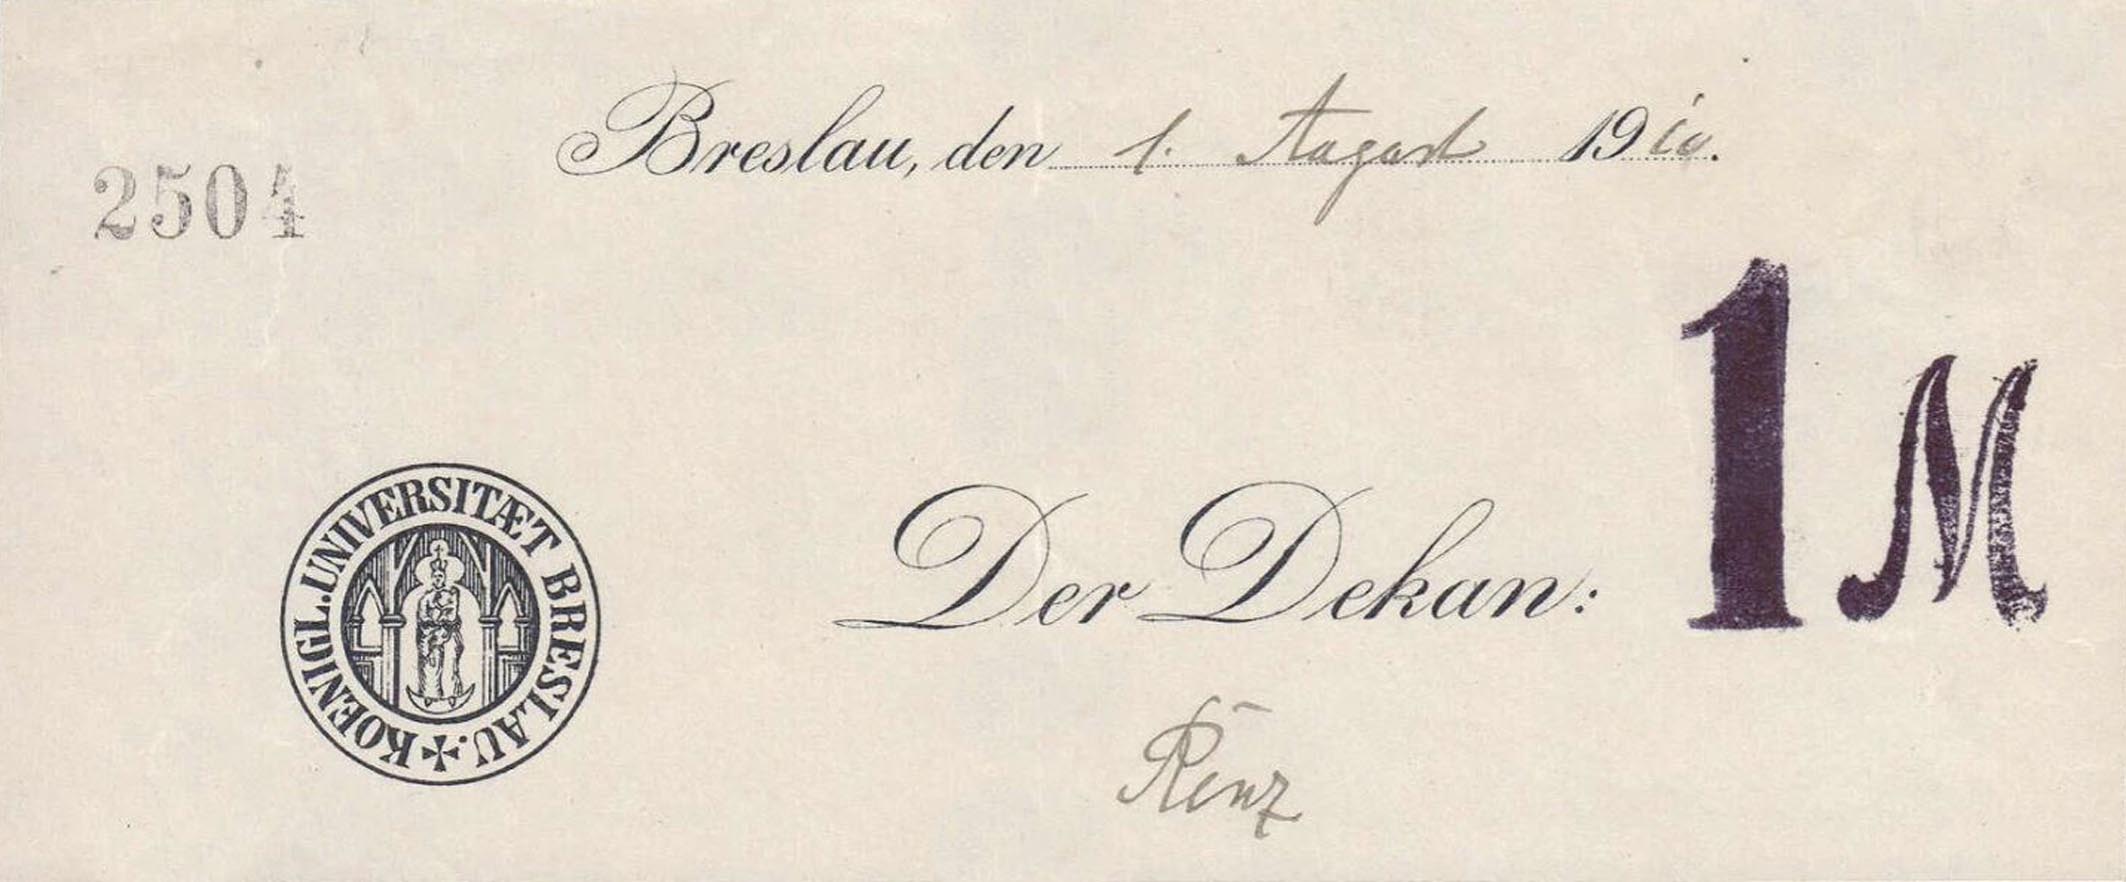 Breslau, den 1. August 1910.
2504
1 M
KOENIGL. UNIVERSITÆT BRESLAU.
Der Dekan:
Renz